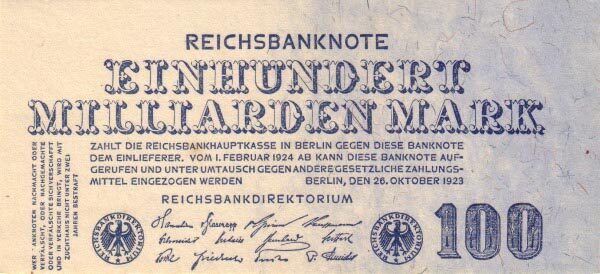 REICHSBANKNOTE
EINHUNDERT
MILLIARDEN MARK
ZAHLT DIE REICHSBANKHAUPTKASSE IN BERLIN GEGEN DIESE BANKNOTE
DEM EINLIEFERER. VOM 1. FEBRUAR 1924 AB KANN DIESE BANKNOTE AUF-
GERUFEN UND UNTER UMTAUSCH GEGEN ANDERE GESETZLICHE ZAHLUNGS-
MITTEL EINGEZOGEN WERDEN BERLIN, DEN 26. OKTOBER 1923
REICHSBANKDIREKTORIUM
WER BANKNOTEN NACHMACHT ODER
VERFÄLSCHT, ODER NACHGEMACHTE
ODER VERFÄLSCHTE SICH VERSCHAFFT
UND IN VERKEHR BRINGT, WIRD MIT
ZUCHTHAUS NICHT UNTER ZWEI
JAHREN BESTRAFT
REICHSBANKDIREKTORIUM
REICHSBANKDIREKTORIUM
100